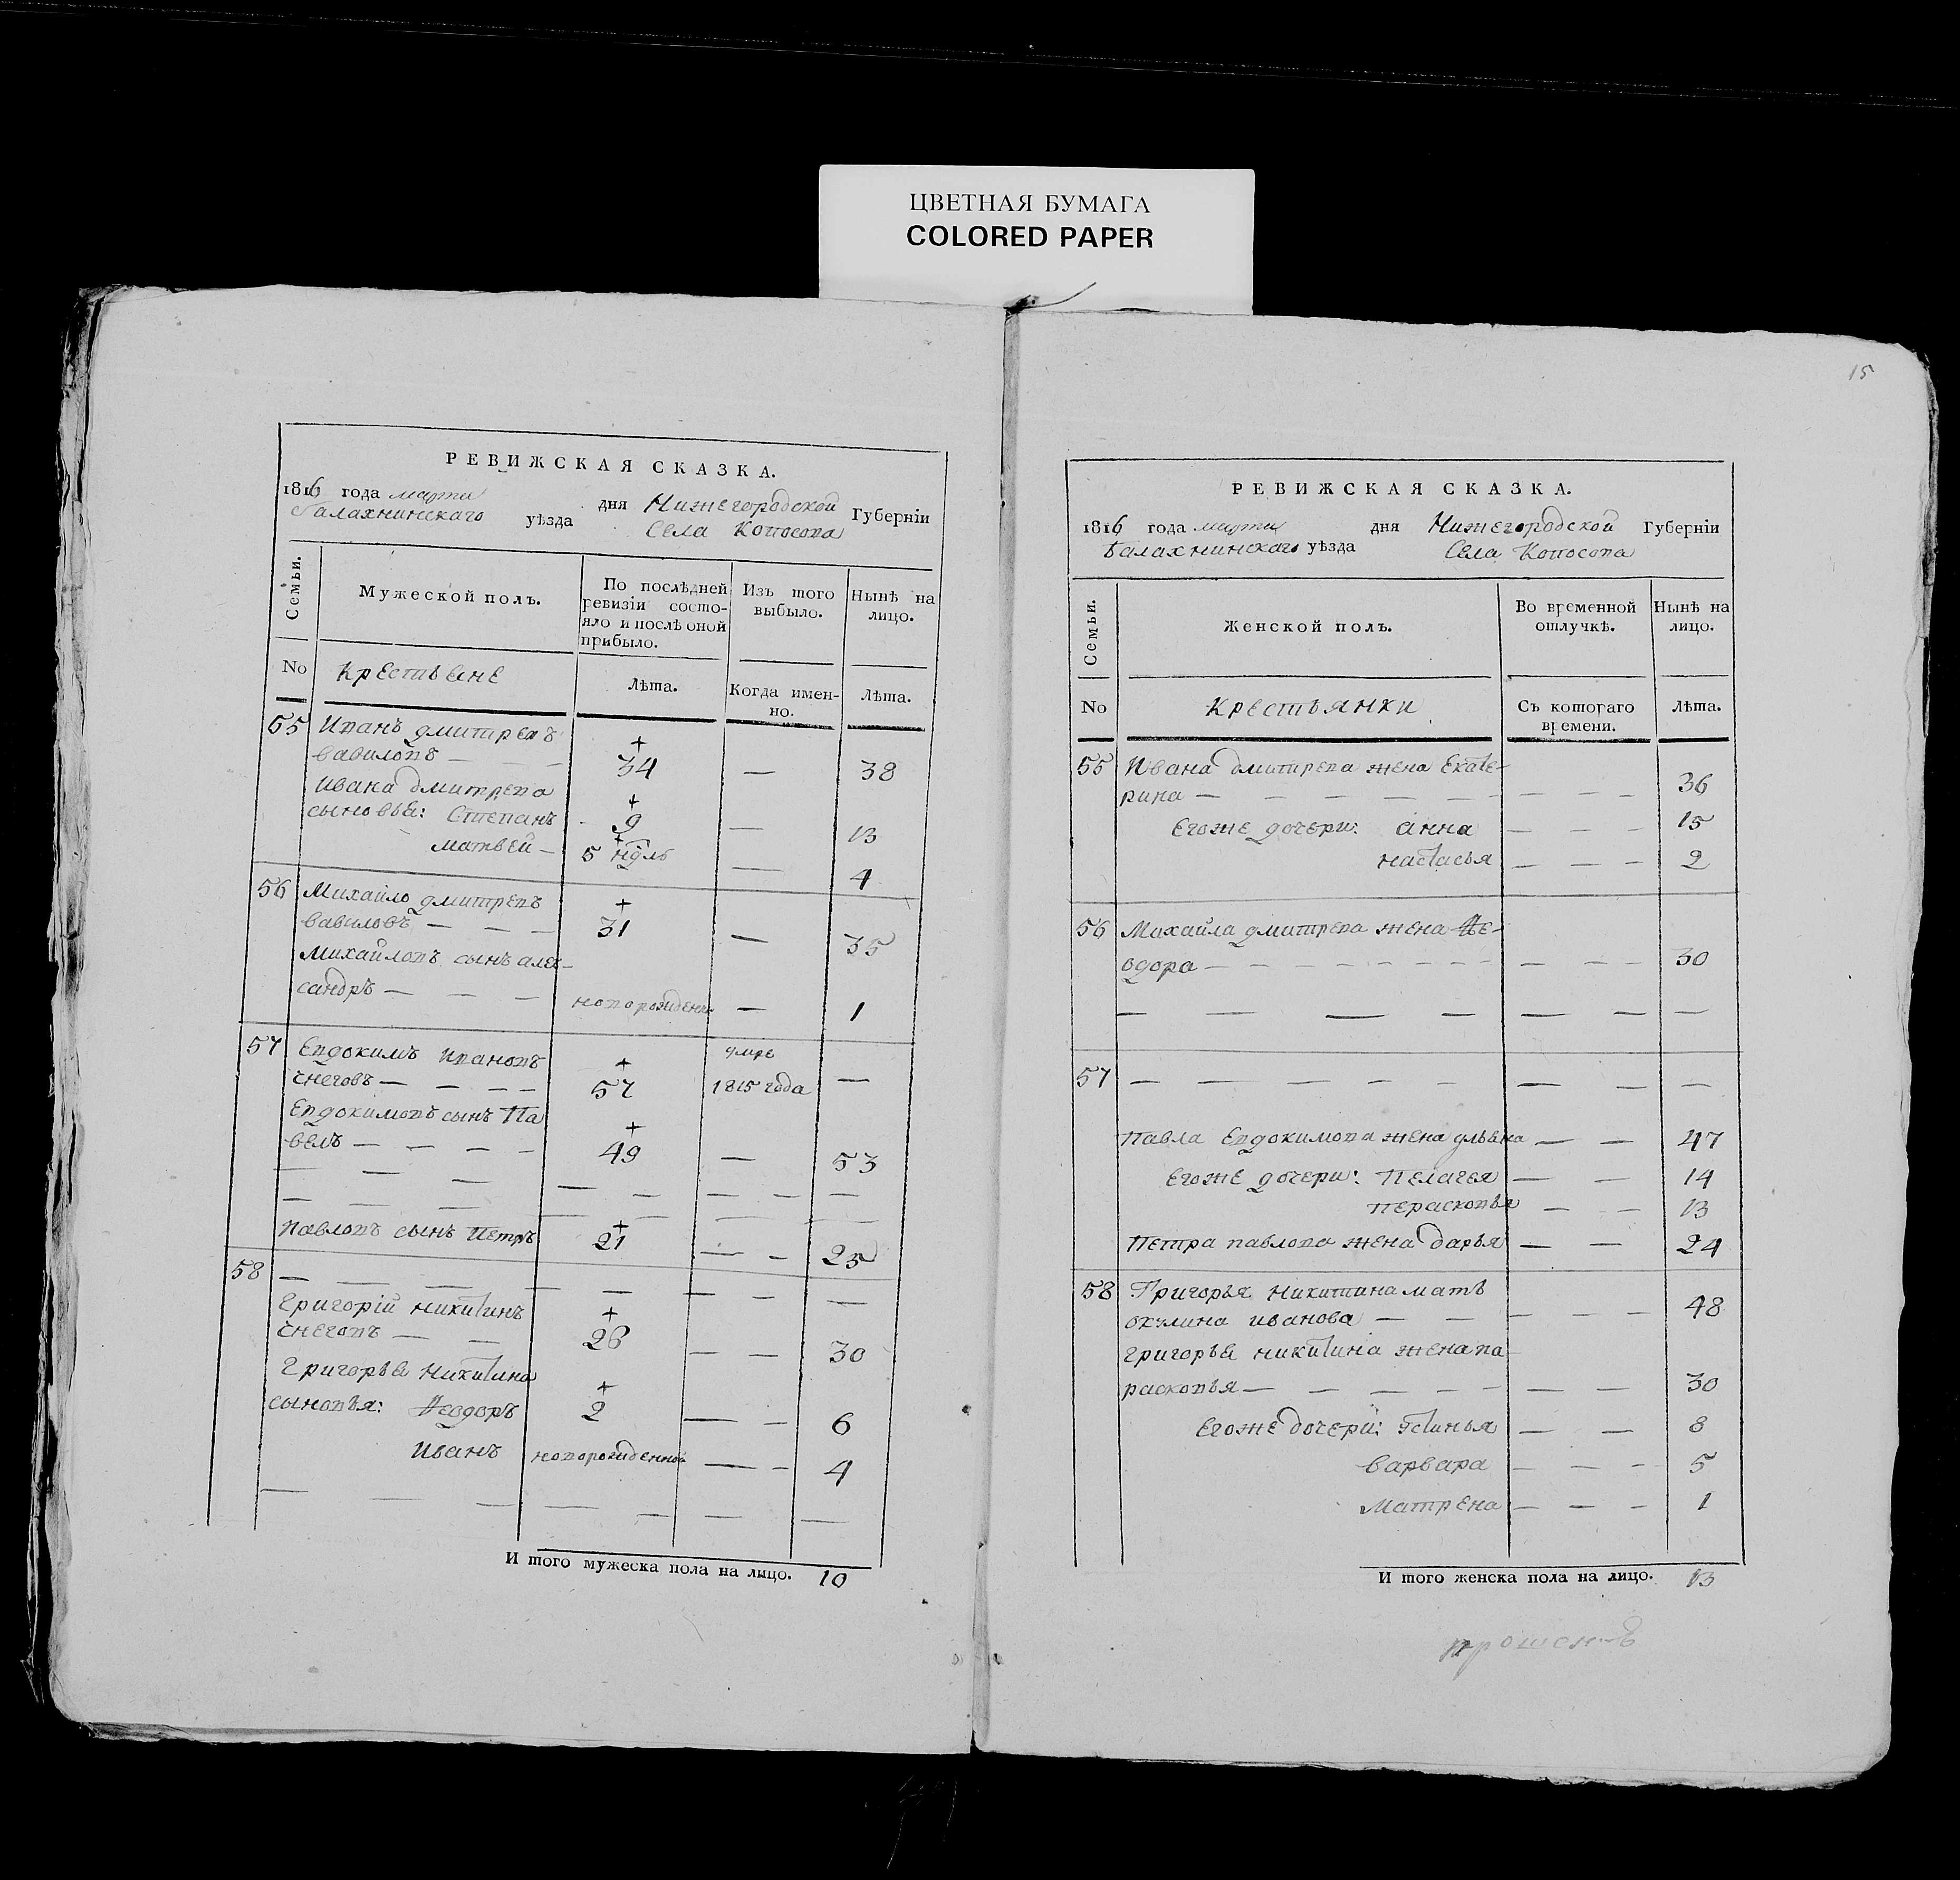 ЦВЕТНАЯ БУМАГА
COLORED PAPER
РЕВИЖСКАЯ СКАЗКА.
1816 года марта дня Нижегородской Губерніи
Балахнинскаго уѣзда Села Копосова
Семьи.
Мужеской полъ.
По послѣдней ревизіи состо-
яло и послѣ оной
прибыло.
Изъ того
выбыло.
Нынѣ на
лицо.
No
Крестьяне
Лѣта.
Когда имен-
но.
Лѣта.
55 Иванъ дмитревъ
вавиловъ — — — 34 — 38
Ивана дмитрева
сыновья: Степанъ 9 — 13
матвей — 5 — 4
56 Михайло дмитревъ
вавиловъ — — — 31 — 35
Михайловъ сынъ алек-
сандръ — — — новорожденн — 1
57 Евдокимъ Ивановъ умре
снеговъ — — — — 57 1815 года —
Евдокимовъ сынъ Па
велъ — — — — 49 — 53
— — — — — — — —
— — — — — — — —
Павловъ сынъ Петръ 21 — — 25
58 — — — — — — — —
Григорій никитинъ
снеговъ — — 26 — — 30
Григорья никитина
сыновья: Ѳеодоръ 2 — — 6
Иванъ новорожденной — — 4
— — — — — — —
И того мужеска пола на лицо. 10
15
РЕВИЖСКАЯ СКАЗКА.
1816 года марта дня Нижегородской Губерніи
Балахнинскаго уѣзда Села Копосова
Семьи.
Женской полъ.
Во временной
отлучкѣ.
Нынѣ на
лицо.
No
Крестьянки
Съ котораго
времени.
Лѣта.
55 Ивана дмитрева жена Екате-
рина — — — — — — — — — 36
Егоже дочери: анна — — — 15
настасья — — — 2
56 Михайла дмитрева жена Ѳе-
одора — — — — — — — — — 30
— — — — — — —
57 — — — — — — — — —
Павла Евдокимова жена ульяна — — 47
Егоже дочери: Пелагея — — 14
Перасковья — — 13
Петра павлова жена дарья — — 24
58 Григорья Никитина мать
окулина иванова — — — — — 48
григорья никитина жена па-
расковья — — — — — — — 30
Егоже дочери: Устинья — — 8
варвара — — — 5
Матрена — — — 1
И того женска пола на лицо. 13